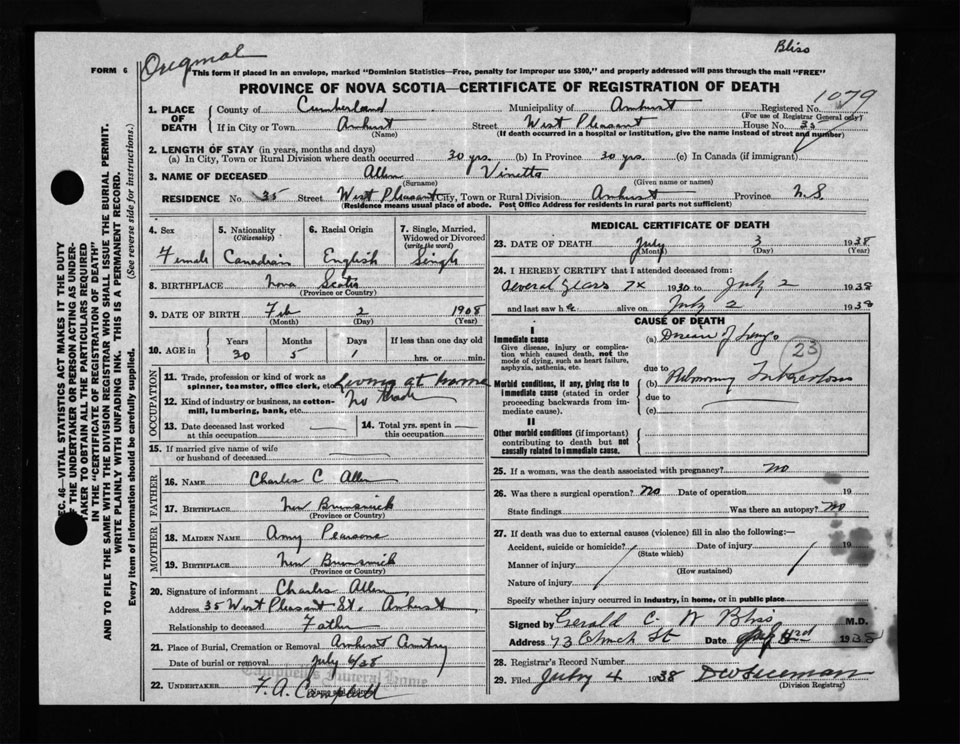 Bliss
Original
FORM 6
This form if placed in an envelope, marked "Dominion Statistics—Free, penalty for improper use $300," and properly addressed will pass through the mail "FREE"
PROVINCE OF NOVA SCOTIA—CERTIFICATE OF REGISTRATION OF DEATH
1079
1. PLACE OF DEATH
County of Cumberland Municipality of Amherst Registered No.
(For use of Registrar General only)
If in City or Town Amherst Street West Pleasant House No. 35
(Name) (If death occurred in a hospital or institution, give the name instead of street and number)
2. LENGTH OF STAY (in years, months and days)
(a) In City, Town or Rural Division where death occurred 30 yrs. (b) In Province 30 yrs. (c) In Canada (if immigrant)
3. NAME OF DECEASED Allen Vinetta
(Surname) (Given name or names)
RESIDENCE No. 35 Street West Pleasant City, Town or Rural Division Amherst Province N.S
(Residence means usual place of abode. Post Office Address for residents in rural parts not sufficient)
4. Sex
Female
5. Nationality
(Citizenship)
Canadian
6. Racial Origin
English
7. Single, Married, Widowed or Divorced
(write the word)
Single
8. BIRTHPLACE Nova Scotia
(Province or Country)
9. DATE OF BIRTH Feb 2 1908
(Month) (Day) (Year)
10. AGE in
Years Months Days If less than one day old
30 5 1 hrs. or min.
OCCUPATION
11. Trade, profession or kind of work as spinner, teamster, office clerk, etc. Living at home
12. Kind of industry or business, as cotton-mill, lumbering, bank, etc. No trade
13. Date deceased last worked at this occupation
14. Total yrs. spent in this occupation
15. If married give name of wife or husband of deceased
FATHER
16. NAME Charles C Allen
17. BIRTHPLACE New Brunswick
(Province or Country)
MOTHER
18. MAIDEN NAME Amy Pearsons
19. BIRTHPLACE New Brunswick
(Province or Country)
20. Signature of informant Charles Allen
Address 35 West Pleasant St. Amherst
Relationship to deceased Father
21. Place of Burial, Cremation or Removal Amherst Cemetry
Date of burial or removal July 6/38
Campbell's Funeral Home
22. UNDERTAKER F. A. Campbell
MEDICAL CERTIFICATE OF DEATH
23. DATE OF DEATH July 3 1938
(Month) (Day) (Year)
24. I HEREBY CERTIFY that I attended deceased from:
Several years 1930 to July 2 1938
and last saw her alive on July 2 1938
CAUSE OF DEATH
I
Immediate cause
Give disease, injury or complication which caused death, not the mode of dying, such as heart failure, asphyxia, asthenia, etc.
(a) Disease of Lungs
23
due to
Morbid conditions, if any, giving rise to immediate cause (stated in order proceeding backwards from immediate cause).
(b) Pulmonary Tuberculosis
due to
(c)
II
Other morbid conditions (if important) contributing to death but not causally related to immediate cause.
25. If a woman, was the death associated with pregnancy? no
26. Was there a surgical operation? No Date of operation 19
State findings Was there an autopsy? No
27. If death was due to external causes (violence) fill in also the following:—
Accident, suicide or homicide? Date of injury 19
(State which)
Manner of injury
(How sustained)
Nature of injury
Specify whether injury occurred in industry, in home, or in public place
Signed by Gerald C. W Bliss M.D.
Address 73 Church St Date July 3rd 1938
28. Registrar's Record Number
29. Filed July 4 1938
(Division Registrar)
SEC. 46—VITAL STATISTICS ACT MAKES IT THE DUTY
OF THE UNDERTAKER OR PERSON ACTING AS UNDER-
TAKER TO OBTAIN ALL THE PARTICULARS REQUIRED
IN THE "CERTIFICATE OF REGISTRATION OF DEATH"
AND TO FILE THE SAME WITH THE DIVISION REGISTRAR WHO SHALL ISSUE THE BURIAL PERMIT.
WRITE PLAINLY WITH UNFADING INK. THIS IS A PERMANENT RECORD.
Every item of information should be carefully supplied. (See reverse side for instructions.)